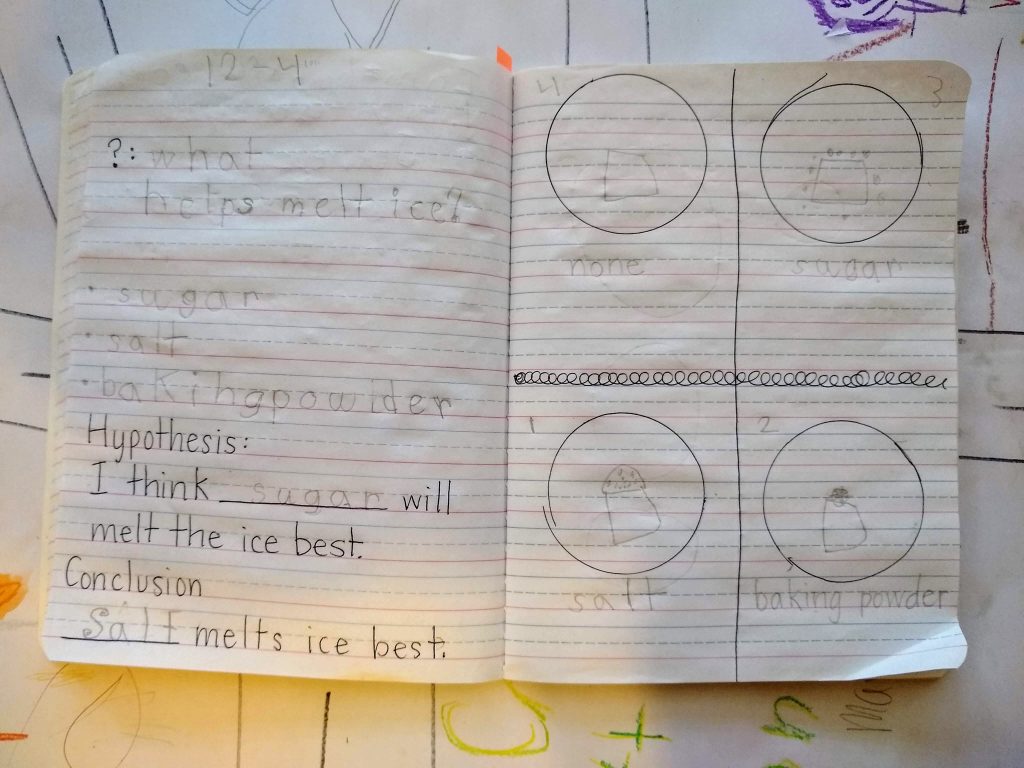 12-4
?: what
helps melt ice?
· sugar
· salt
· bakingpowder
Hypothesis:
I think sugar will
melt the ice best.
Conclusion
Salt melts ice best.
4
none
3
sugar
1
salt
2
baking powder